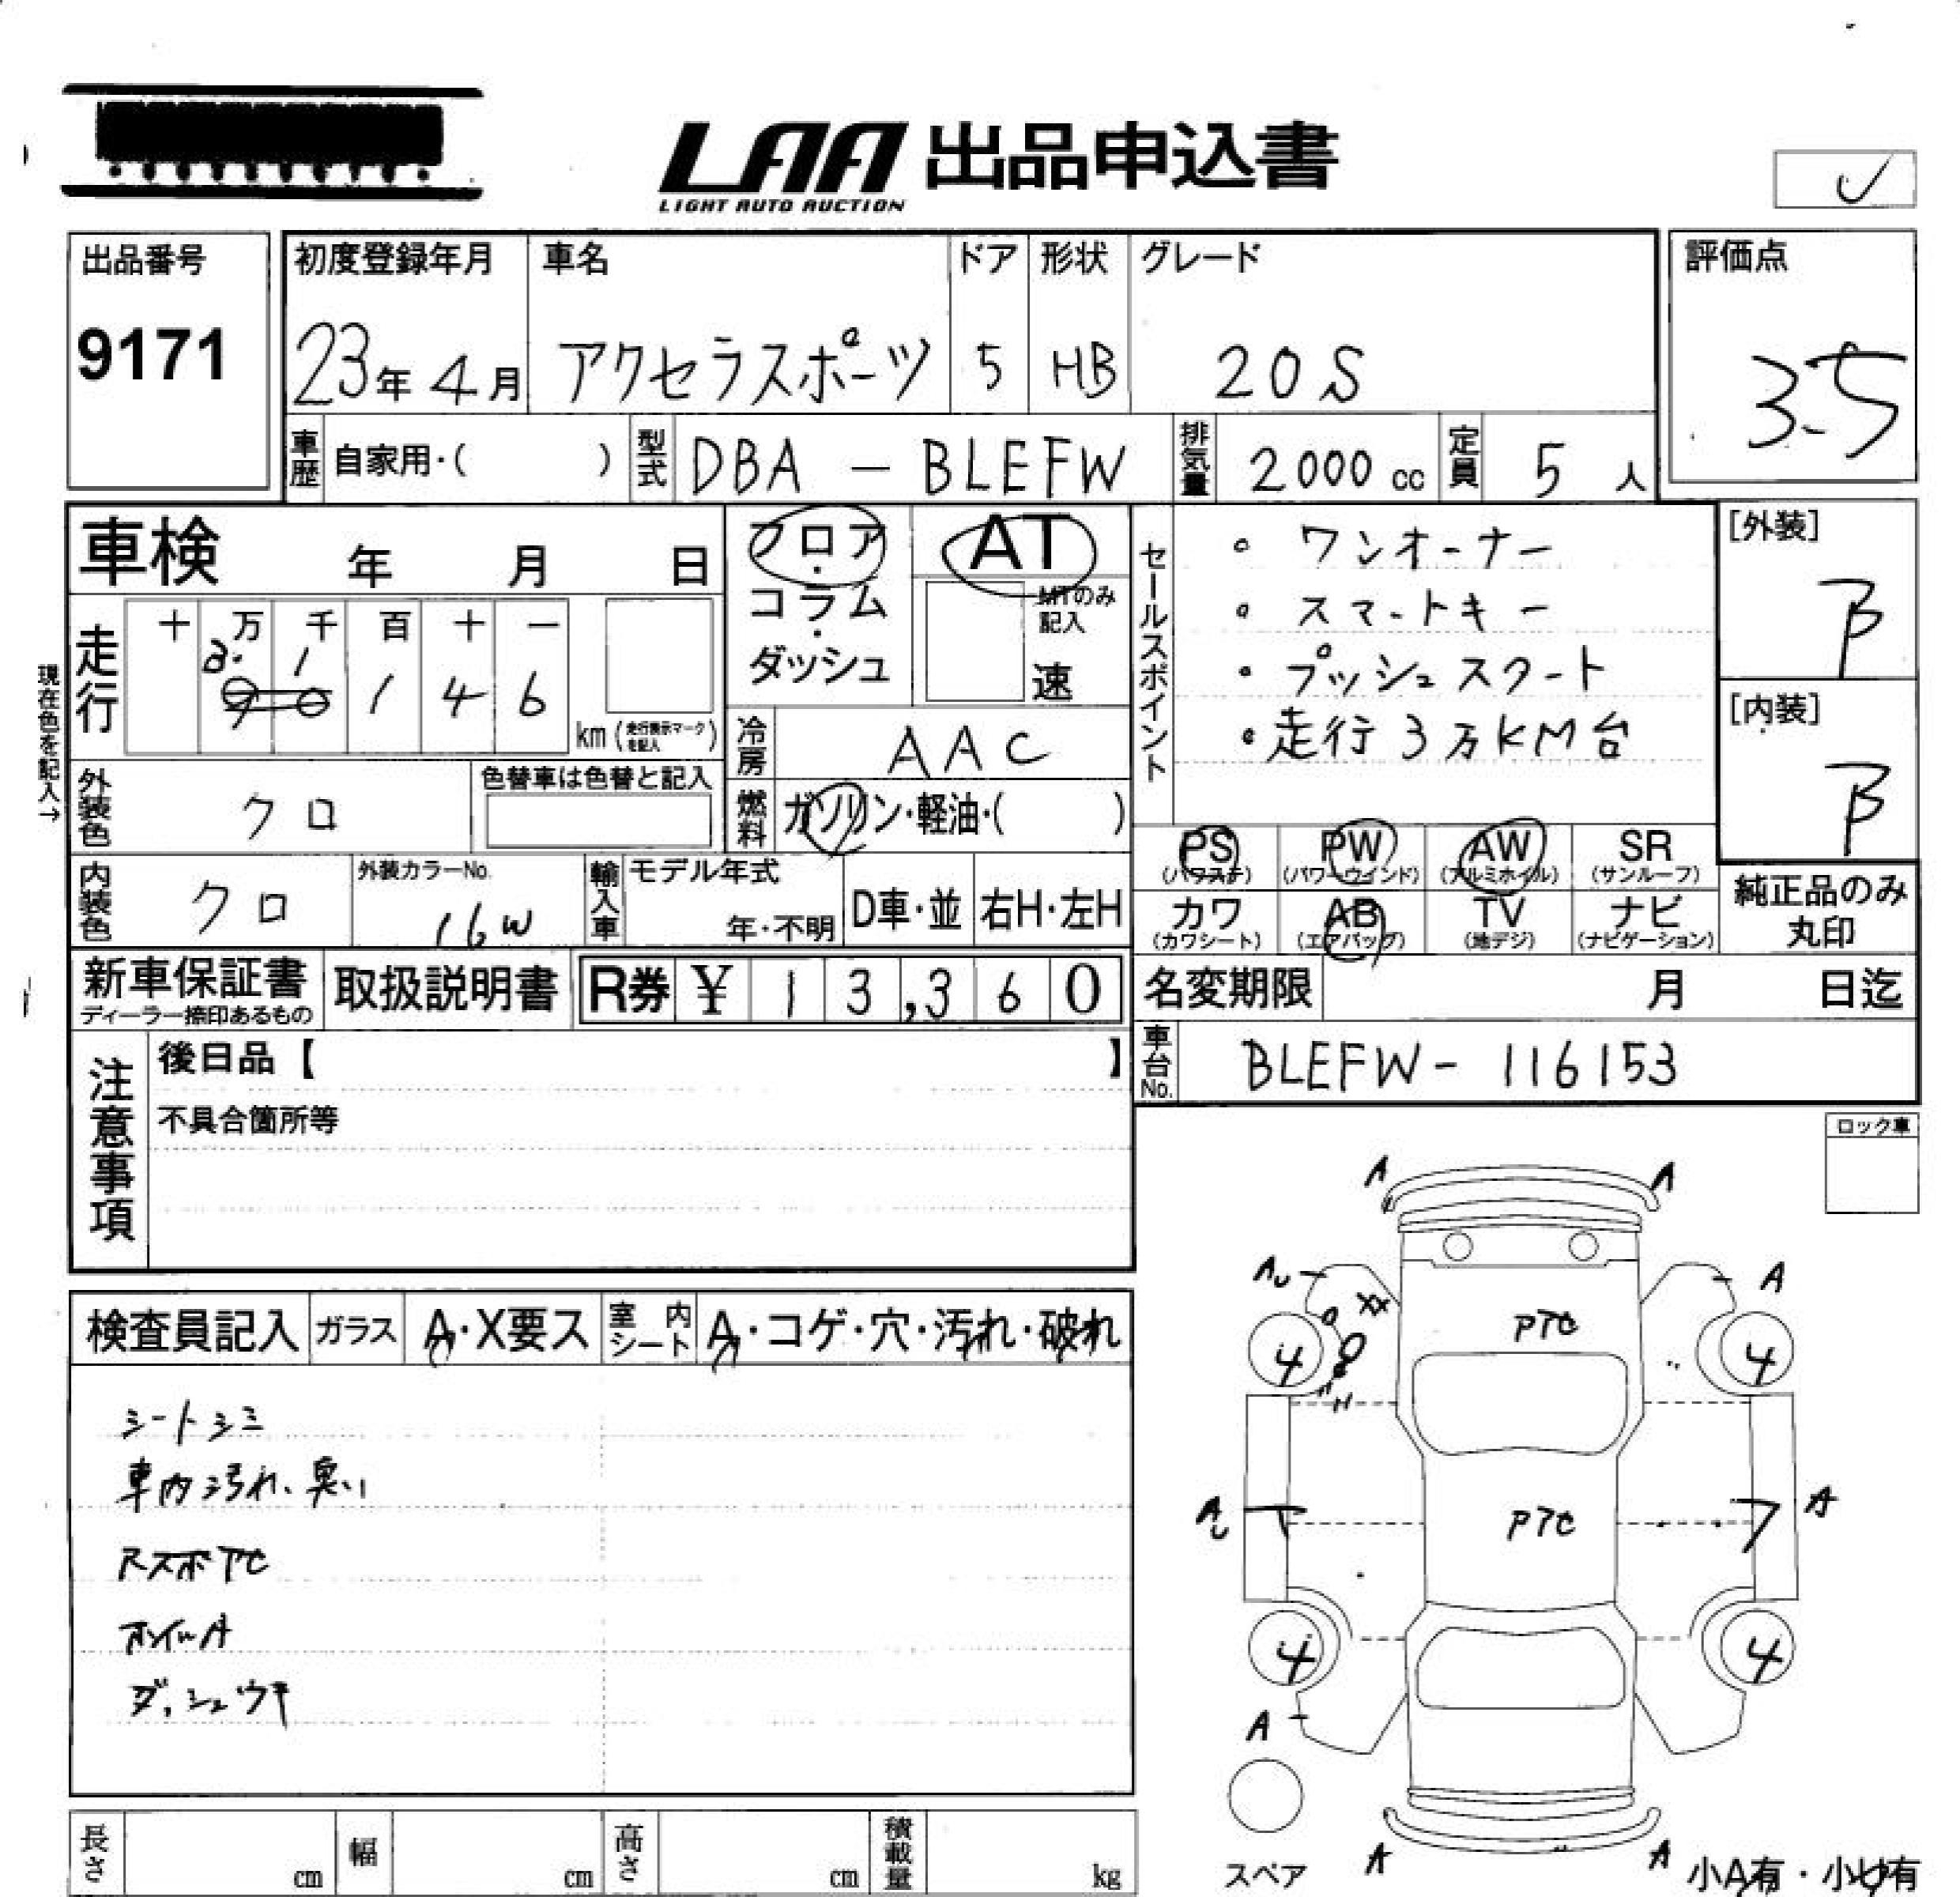 LAA 出品申込書
LIGHT AUTO AUCTION
出品番号
9171
初度登録年月 車名 ドア 形状 グレード
23年 4月 アクセラスポーツ 5 HB 20S
評価点
3.5
車歴 自家用・( ) 型式 DBA - BLEFW 排気量 2000 cc 定員 5 人
車検 年 月 日
フロア・コラム・ダッシュ
AT
MTのみ記入
速
セールスポイント
・ワンオーナー
・スマートキー
・プッシュスタート
・走行3万KM台
[外装]
B
[内装]
B
現在色を記入→
走行
十 万 千 百 十 一
1 4 6
km (走行表示マークを記入)
冷房 AAC
外装色 クロ
色替車は色替と記入
燃料 ガソリン・軽油・( )
PS (パワステ) PW (パワーウインド) AW (アルミホイル) SR (サンルーフ)
カワ (カワシート) AB (エアバッグ) TV (地デジ) ナビ (ナビゲーション)
純正品のみ丸印
内装色 クロ
外装カラーNo. 16W
輸入車 モデル年式 年・不明 D車・並 右H・左H
新車保証書 ディーラー捺印あるもの
取扱説明書
R券 ¥ 13,360
名変期限 月 日迄
車台No. BLEFW - 116153
注意事項
後日品【 】
不具合箇所等
ロック車
検査員記入 ガラス A・X要ス 室内シート A・コゲ・穴・汚れ・破れ
シートシミ
車内汚れ、臭い
ホイルA
ダッシュウキ
A A
AU A
PTC
4 4
AU A
PTC
4 4
A
A A
スペア
小A有・小U有
長さ cm 幅 cm 高さ cm 積載量 kg